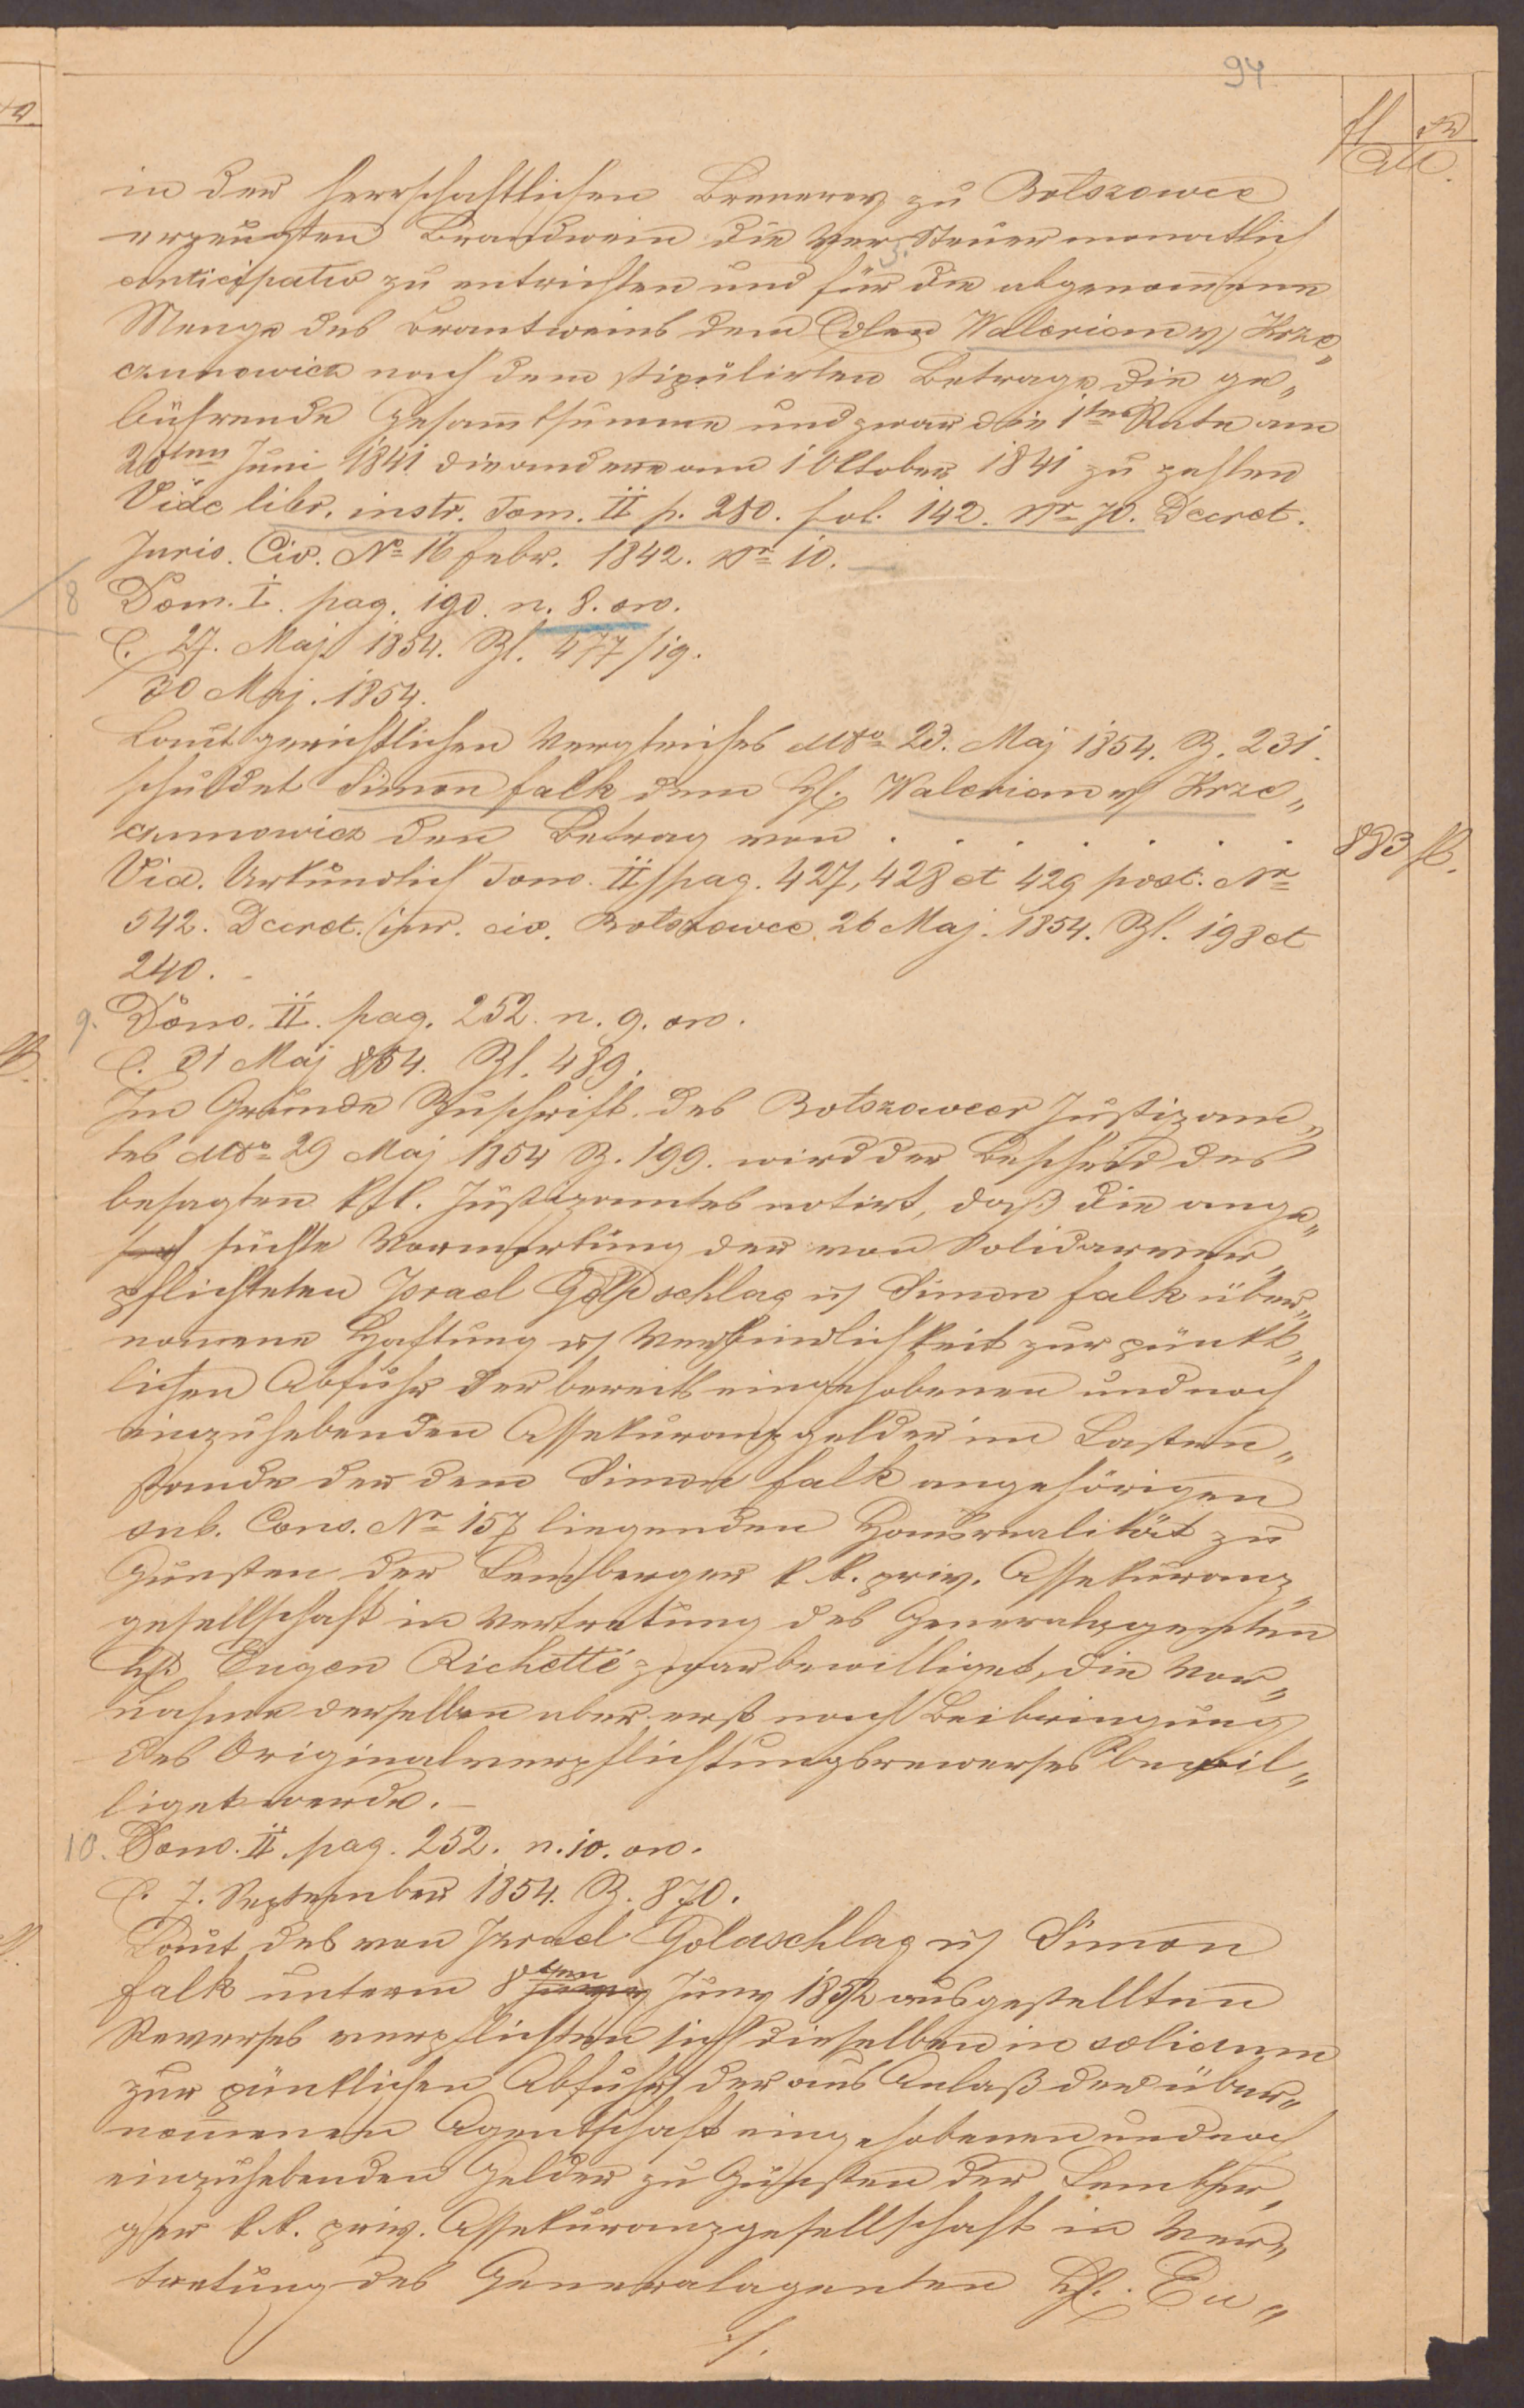 94
fl xr
CM.
in der herrschaftlichen Brenerey zu Bołszowce
erzeugten Brandwein die Verz. Steuer monatlich
anticipativ zu entrichten und für die abgenom̄ene
Menge des Brantweins dem Edlen Walerian v Krze„
czunowicz nach dem stipulirten Betrage die ge„
bührende Gesam̄tsumme und zwar die 1te Rate am
20ten Juni 1841 die andere am 1 Oktober 1841 zu zahlen
Vide libr. instr. Tom. II p. 280. fol. 142. Nr 70. Decret.
Juris. Civ. No 16 Febr. 1842. Nr 10. —
8 Dom. I. pag. 190. n. 8. on.
C. 27. Maj 1854. Zl. 477/19.
30 Maj. 1854.
Laut gerichtlichen Vergleiches ddto 23. Maj 1854. Z. 231.
schuldet Simon Falk dem H. Walerian v Krze„
czunowicz den Betrag von . . . . . . . 883 fl.
Vid. Urkundlich Tom. II pag. 427, 428 et 429 post. Nr
542. Decret. jur. civ. Bołszowce 26 Maj. 1854. Zl. 198 et
240. -
9. Dom. II. pag. 252. n. 9. on.
C. 31 Maj 854. Zl. 489.
Im Grunde Zuschrift des Bołszowcer Justizam„
tes ddto 29 Maj 1854 Z. 199. wird der Bescheid des
besagten Justizamtes notirt, daß die ange„
suchte Vormerkung der von Solidarver„
pflichteten Israel Goldschlag u Simon Falk über„
nom̄ene Haftung u Verbindlichkeit zur pünkt„
lichen Abfuhr der bereits eingehobenen und noch
einzuhebenden Assekuranzgelder im Lasten„
stande der dem Simon Falk angehörigen
sub. Cons. Nr 157 liegenden Hausrealität zu
Gunsten der Lemberger k k. priv. Assekuranz„
gesellschaft in Vertretung des Generalagenten
H. Eugen Richetté zwar bewilliget, die Vor„
nahme derselben aber erst nach Beibringung
des Originalverpflichtungsreverses bewil„
liget werde. —
10. Dom. II. pag. 252. n. 10. on.
C. 7. September 1854. Z. 870.
Laut des von Israel Goldschlag u Simon
Falk unterm 8ten Juny 1852 ausgestellten
Reverses verpflichten sich dieselben in solidum
zur pünktlichen Abfuhr der aus Anlaß der über„
nom̄enen Agentschaft eingehobenen und noch
einzuhebenden Gelder zu Gunsten der Lember„
ger k.k. priv. Assekuranzgesellschaft in Ver„
tretung des Generalagenten H. Eu„
./.